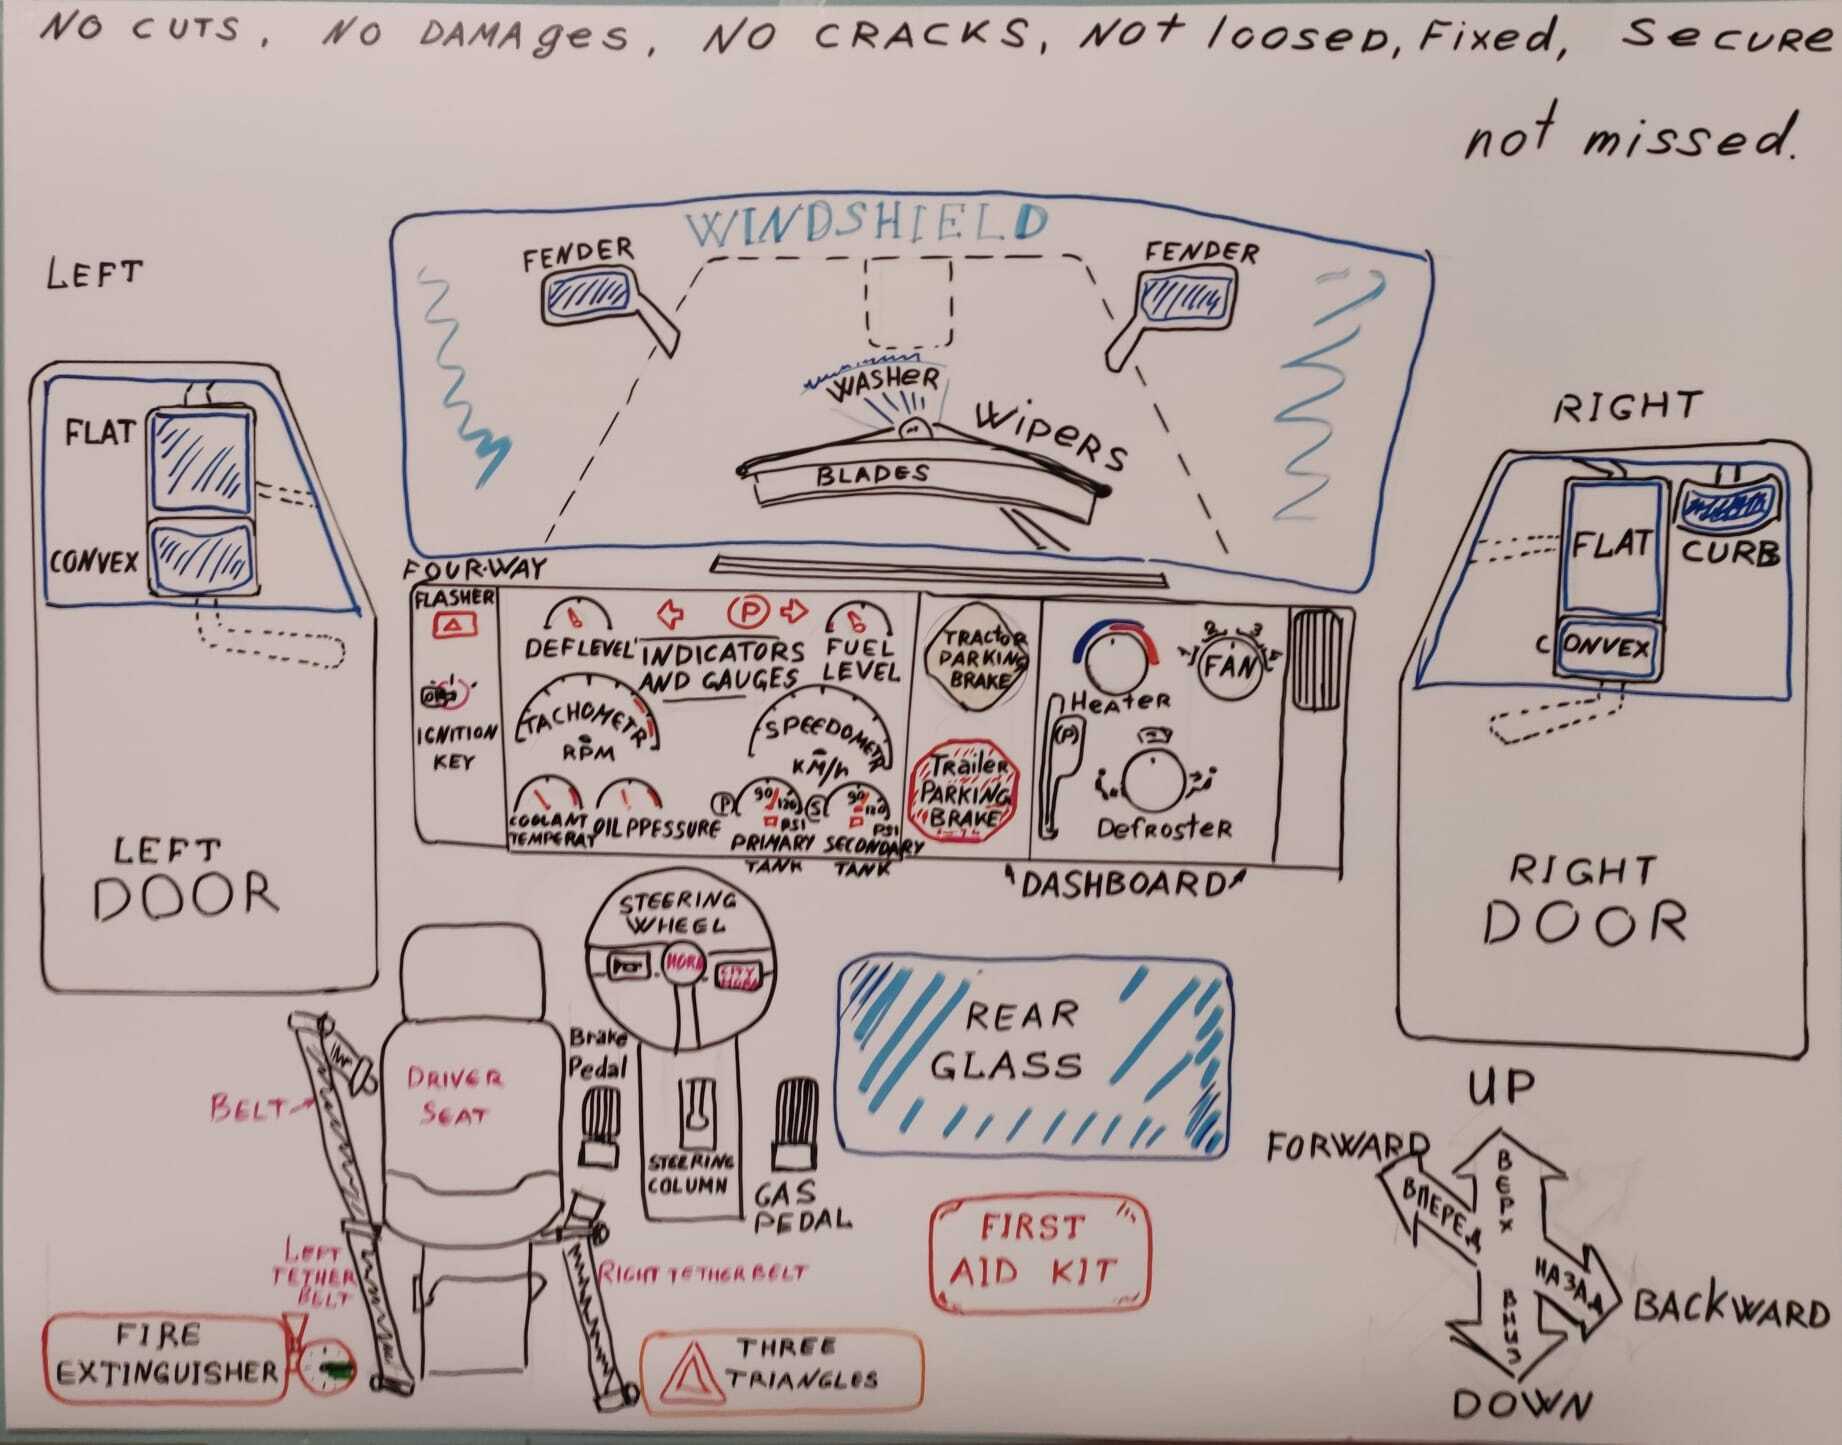 NO CUTS, NO DAMAges, NO CRACKS, NOt loosed, Fixed, SecURE
not missed.
WINDSHIELD
FENDER
FENDER
LEFT
WASHeR
WipeRS
BLADES
RIGHT
FLAT
CONVEX
FLAT
CURB
CONVEX
FOUR-WAY
FLASHER
IGNITION
KEY
DEF LEVEL
P
INDICATORS
AND GAUGES
FUEL
LEVEL
TACHOMETR
RPM
SPEEDOMETR
KM/h
COOLANT
TEMPERAT
OIL PPESSURE
P
90
120
PSI
PRIMARY
TANK
S
90
120
PSI
SECONDARY
TANK
TRACtOR
PARKING
BRAKE
Trailer
PARKING
BRAKE
HeaTeR
(P)
2
3
FAN
DefRosteR
DASHBOARD
LEFT
DOOR
RIGHT
DOOR
STEERING
WHEEL
HORN
CITY
HORN
REAR
GLASS
Brake
Pedal
DRIVER
SEAT
BELT
STEERING
COLUMN
GAS
PEDAL
LEFT
TETHER
BELT
RIGHT TETHER BELT
FIRST
AID KIT
FIRE
EXTINGUISHER
THREE
TRIANGLES
UP
FORWARD
ВЕРХ
ВПЕРЕД
НАЗАД
BACKWARD
ВНИЗ
DOWN